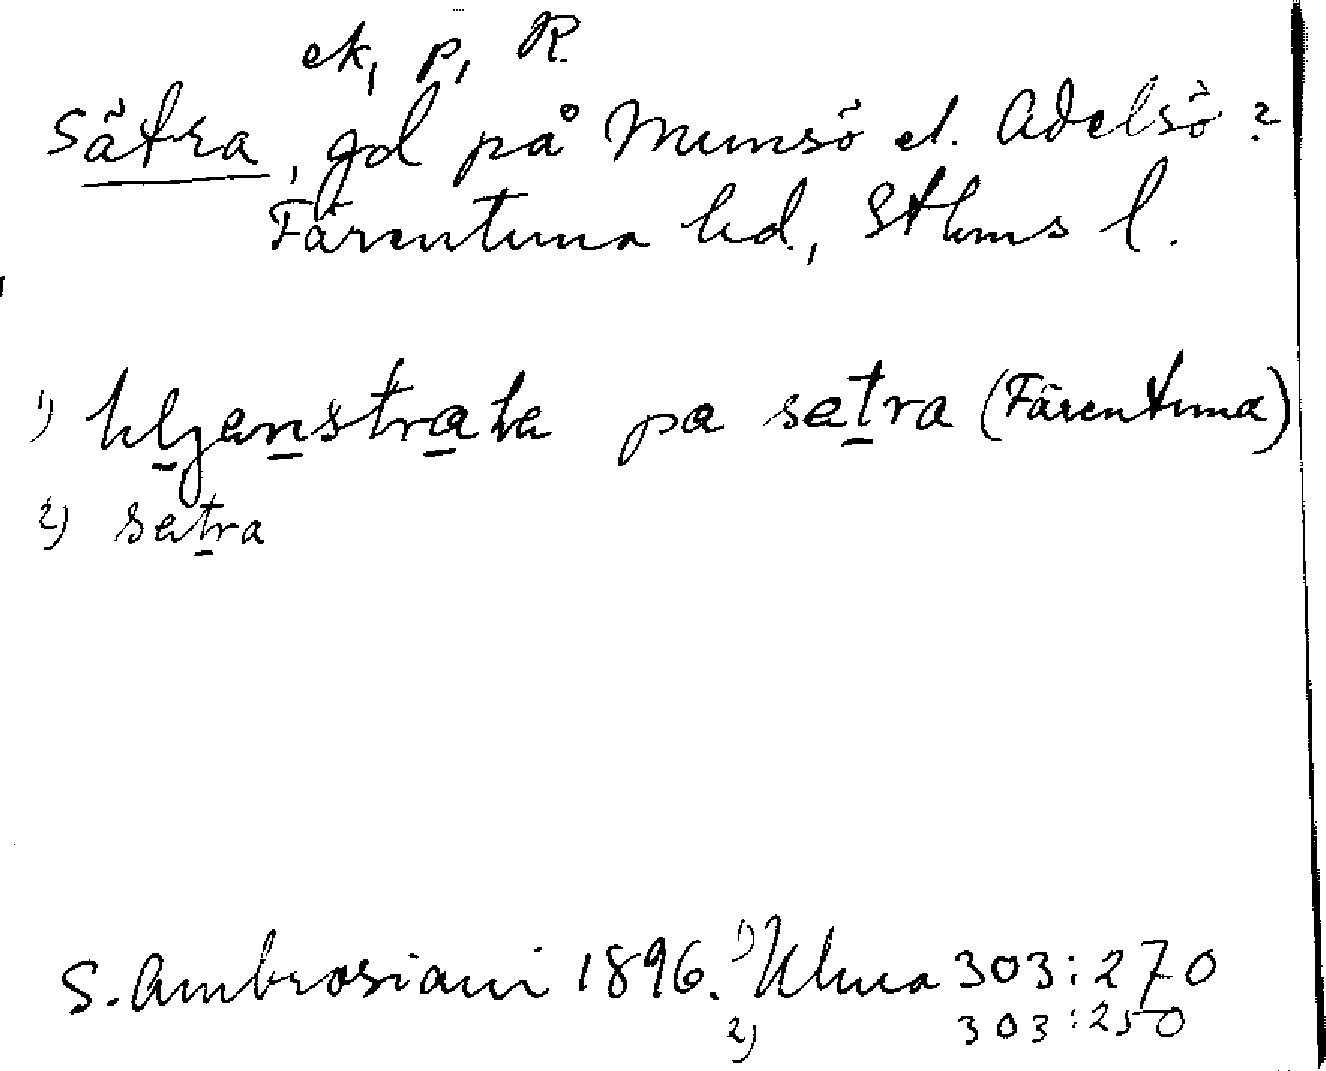 ek, p, R.
Sätra, gd på Munsö el. Adelsö?
Färentuna hd., Sthms l.
1) pa sætra (Färentuna)
2) sætra
S. Ambrosiani 1896. 1) Ulma 303:270
2) 303:250